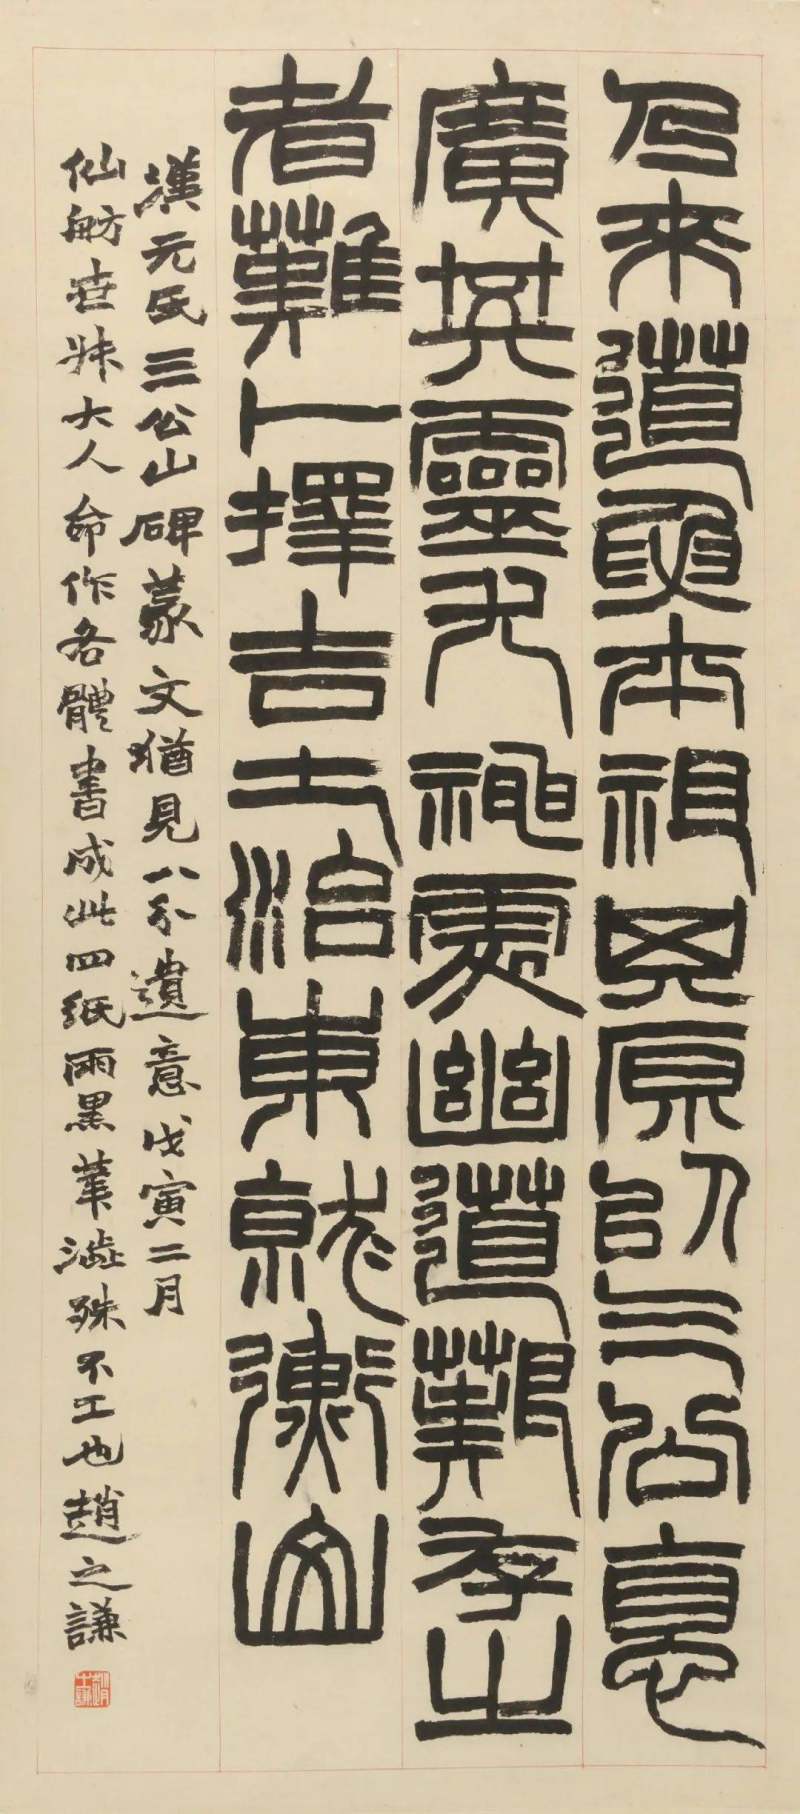 乃來道要本祖其原以三公德
廣其靈尤神處幽道艱存之
者難卜擇吉土治東就衡山
漢元氏三公山碑篆文猶見八分遺意戊寅二月
仙舫世叔大人命作各體書成此四紙雨黑筆澀殊不工也趙之謙